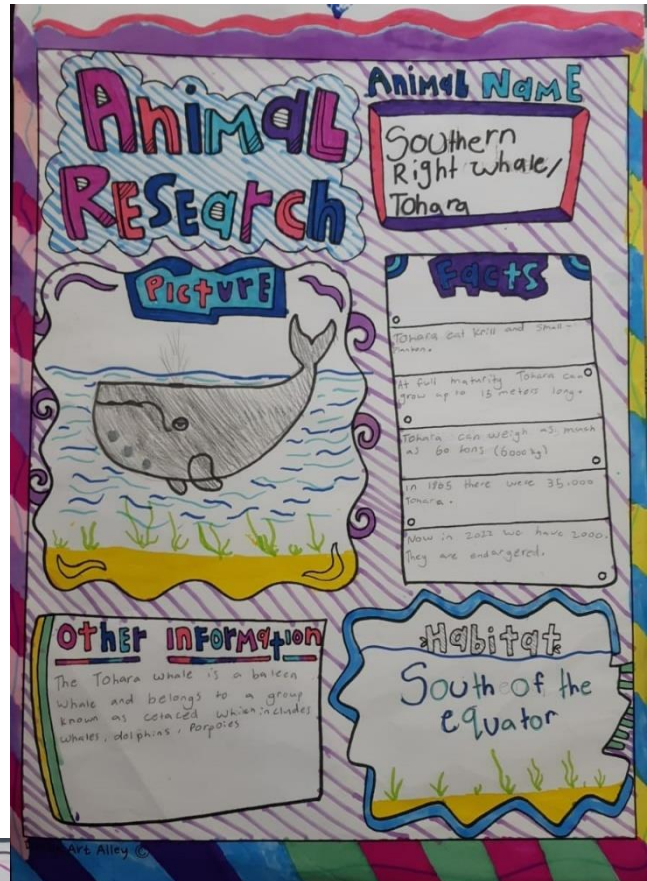 Animal
Research
Animal Name
Southern
Right whale/
Tohara
Picture
Facts
Tohara eat Krill and Small
At full maturity Tohara can
grow up to 15 meters long.
Tohara can weigh as much
as 60 tons (6000kg)
in 1865 there were 35.000
Tohara.
Now in 2022 we have 2000.
They are endargered.
Other information
The Tohara whale is a baleen
Whale and belongs to a group
known as cetaced which includes
whales, dolphins, Porpoies
Habitat
South of the
equator
Art Alley ©